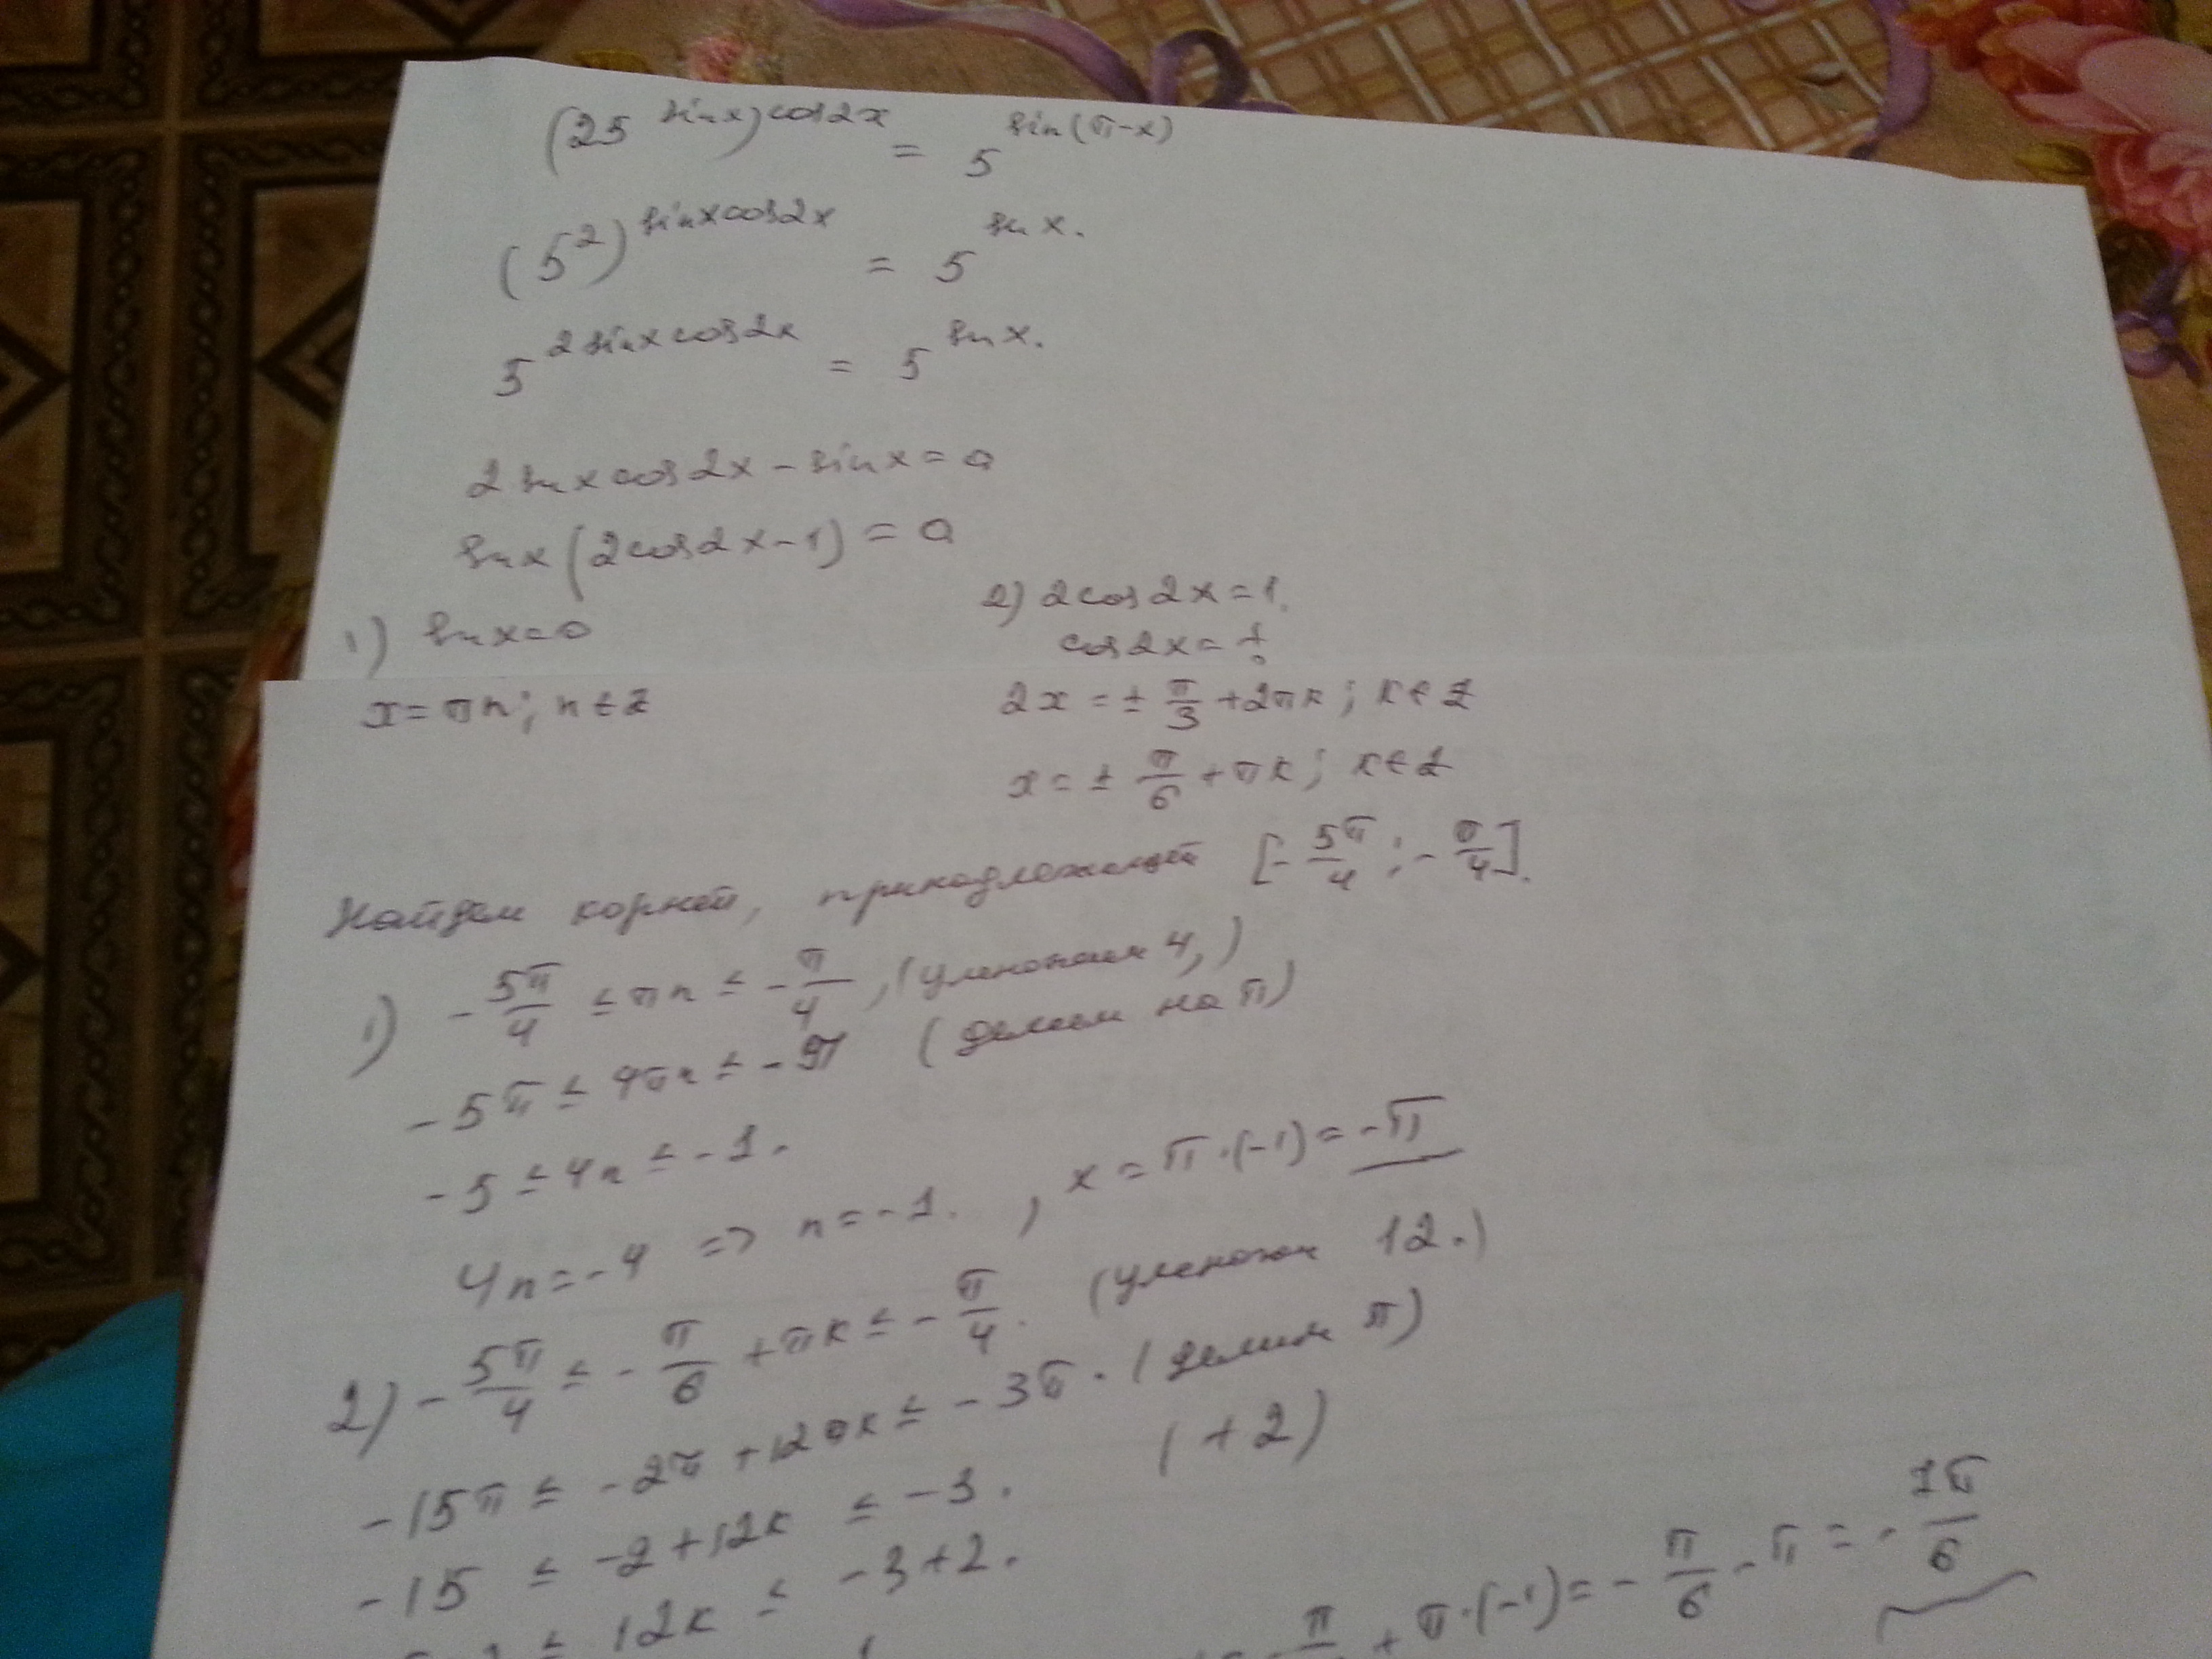 (25^sinx)^cos2x = 5^sin(π-x)
(5^2)^sinxcos2x = 5^sinx.
5^2sinxcos2x = 5^sinx.
2sinxcos2x - sinx = 0
sinx(2cos2x-1) = 0
1) sinx=0
x=πn; n∈Z
2) 2cos2x=1.
cos2x=
2x = ± π/3 + 2πk; k∈Z
x = ± π/6 + πk; k∈Z
Найдем корней, принадлежащей [-5π/4; -π/4].
1) -5π/4 ≤ πn ≤ -π/4, (умножаем 4,)
-5π ≤ 4πn ≤ -π (делим на π)
-5 ≤ 4n ≤ -1.
4n=-4 => n=-1. , x = π·(-1) = -π
2) -5π/4 ≤ -π/6 + πk ≤ -π/4. (умножим 12.)
-15π ≤ -2π + 12πk ≤ -3π. (делим π)
-15 ≤ -2+12k ≤ -3. (+2)
≤ 12k ≤ -3+2.
π + π·(-1) = -π/6 - π = -7π/6